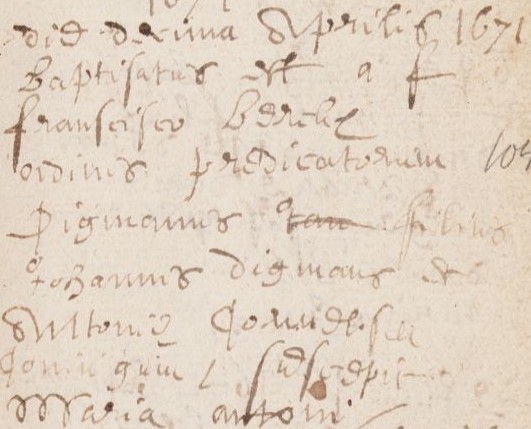 die decima Aprilis 1671
baptisatus est a f
francisco
ordinis predicatorum
Digmanus filius
Johannis digmans et
Antoniæ
Coniugum / suscepit
Maria antoni